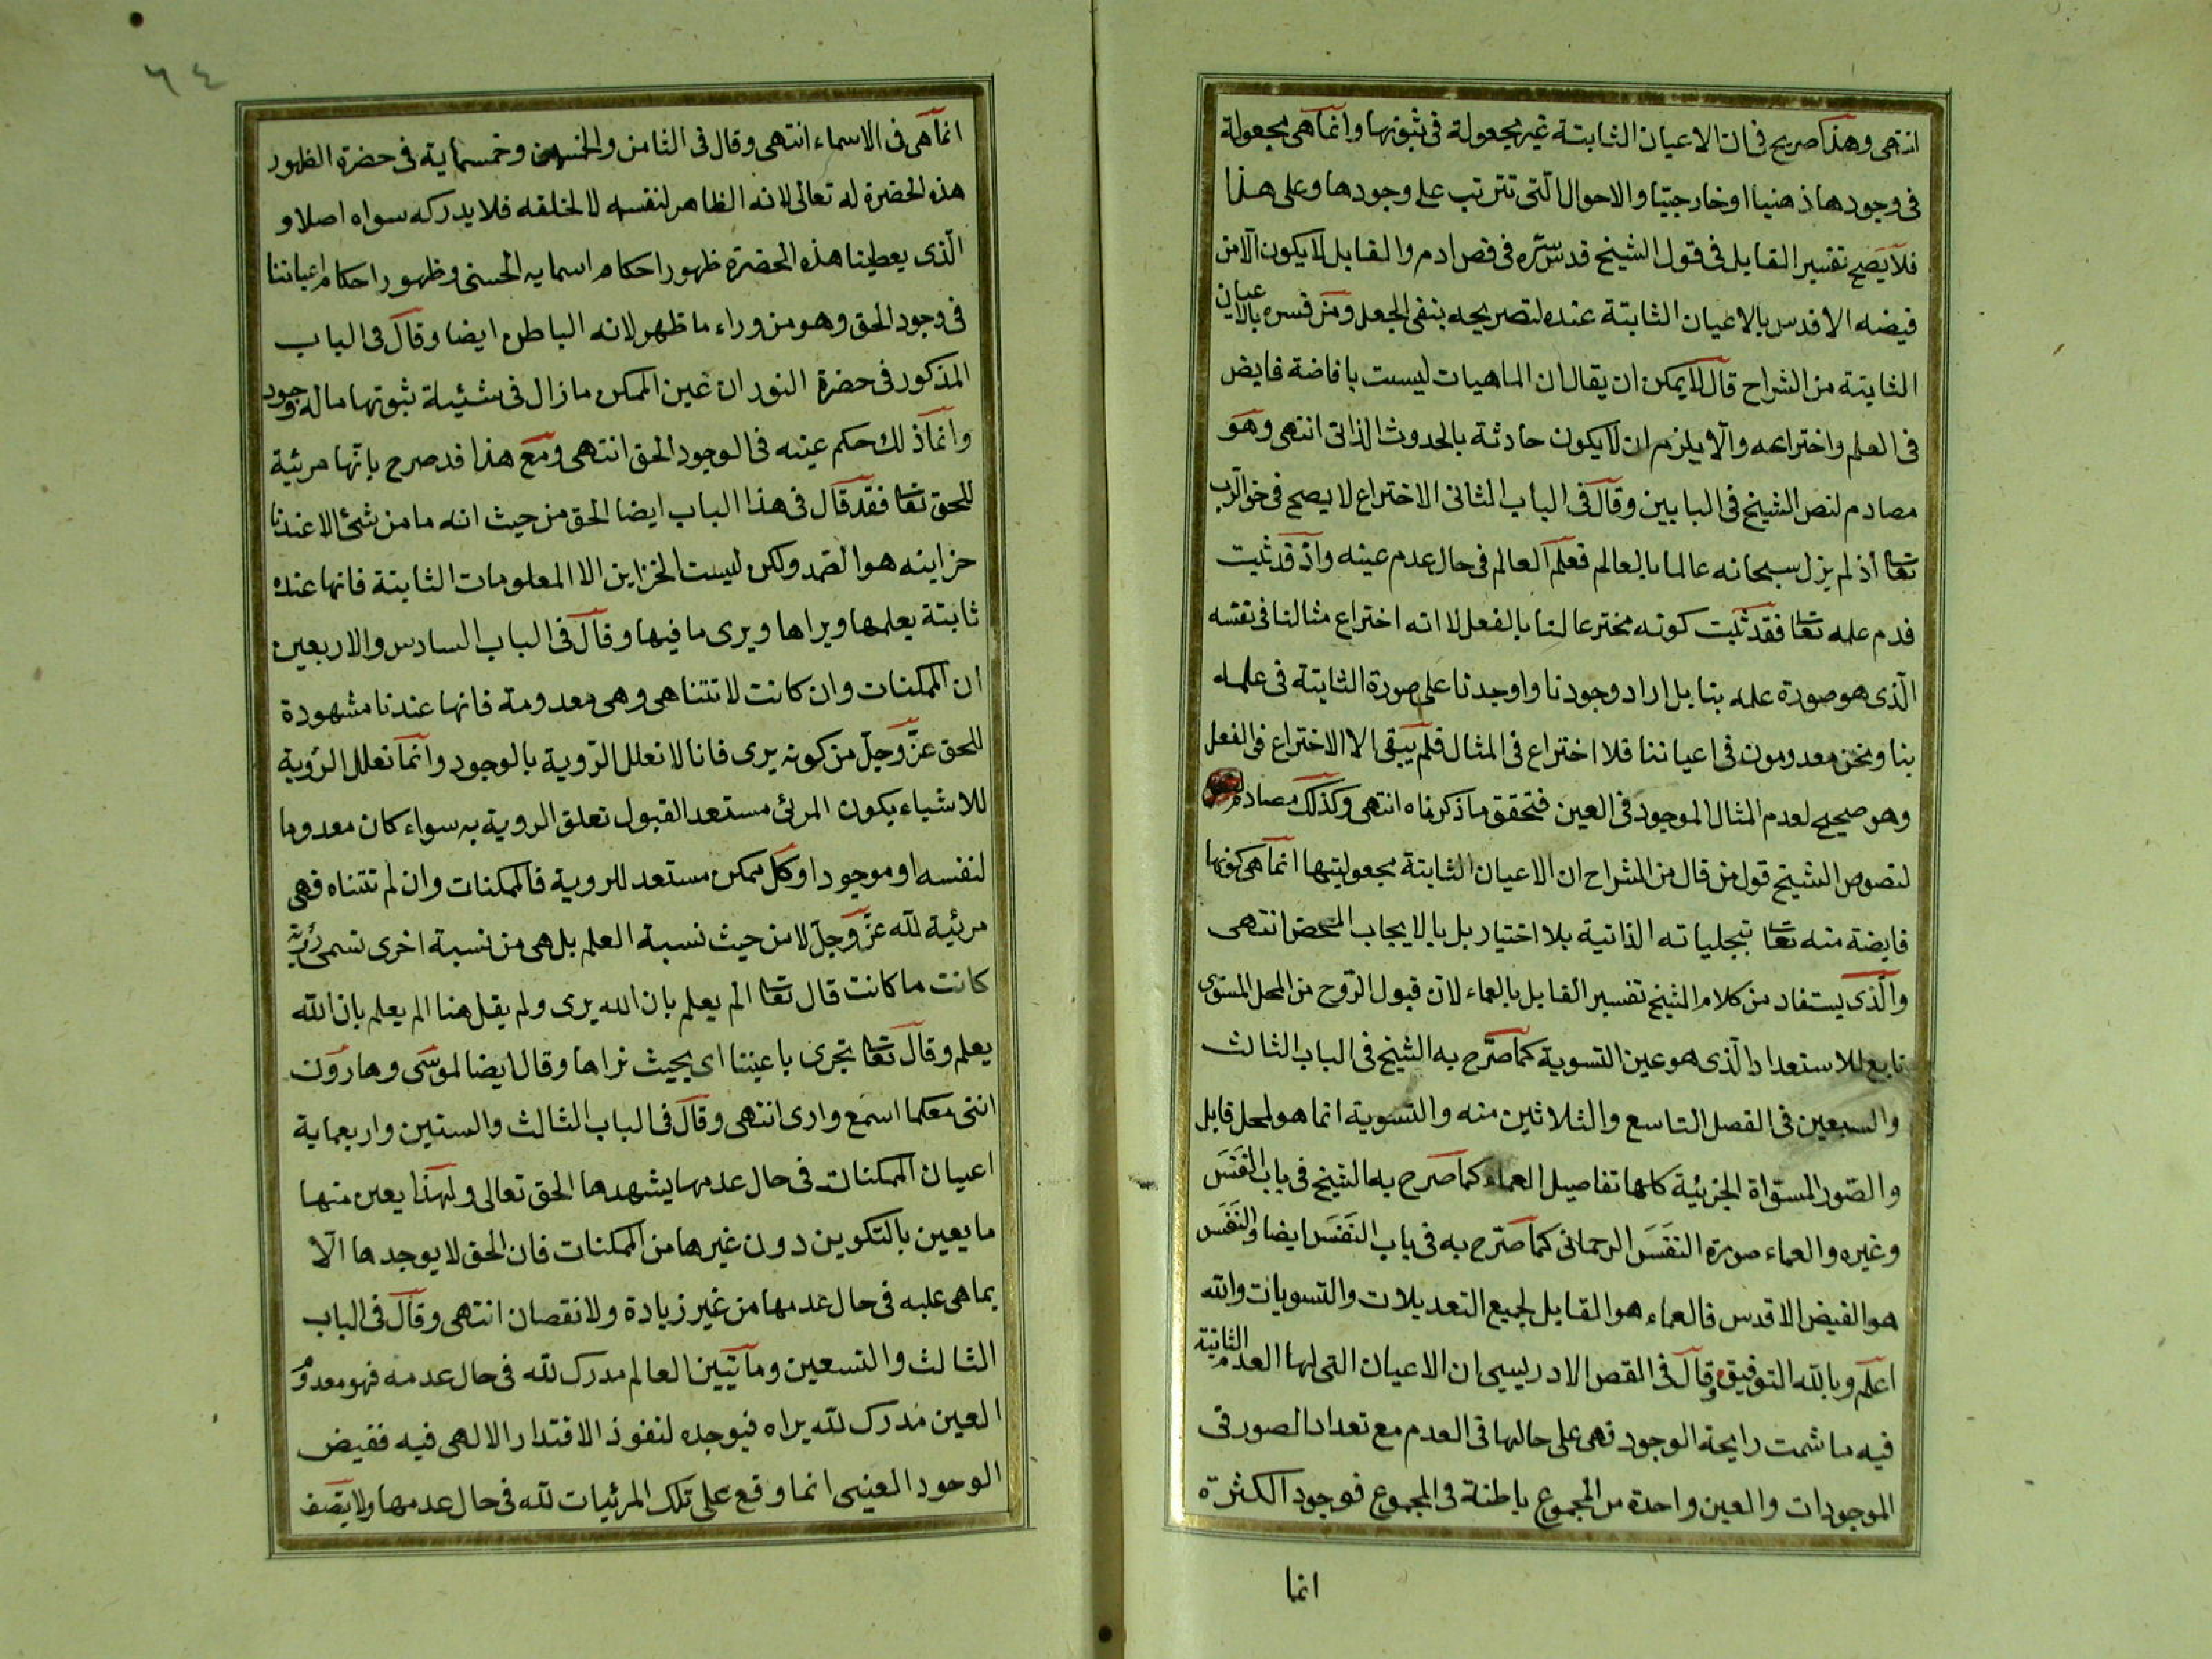 انتهى وهذا صريح فى ان الاعيان الثابتة غير مجعولة فى ثبوتها وانما هى مجعولة
فى وجودها ذهنيا او خارجيّا والاحوال الّتى تترتب على وجودها وعلى هذا
فلا يصح تفسير القابل فى قول الشيخ قدس سرّه فى فص ادم والقابل لا يكون الّا من
فيضه الاقدس بالاعيان الثابتة عنده لتصريحه بنفى الجعل ومن فسره بالاعيان
الثابتة من الشراح قال لا يمكن ان يقال ان الماهيات ليست بافاضة فايض
فى العلم واختراعه والّا يلزم ان لا يكون حادثة بالحدوث الذاتى انتهى وهو
مصادم لنص الشيخ فى البابين وقال فى الباب الثانى الاختراع لا يصح فى حق الرب
تعا اذ لم يزل سبحانه عالما بالعالم فعلم العالم فى حال عدم عينه واذ قد ثبت
قدم علمه تعا فقد ثبت كونه مخترعا لنا بالفعل لا انه اخترع مثالنا فى نفسه
الّذى هو صورة علمه بنا بل اراد وجودنا واوجدنا على صورة الثابتة فى علمه
بنا ونحن معدومون فى اعياننا فلا اختراع فى المثال فلم يبقى الا الاختراع فى الفعل
وهو صحيح لعدم المثال الموجود فى العين فتحقق ما ذكرناه انتهى وكذلك مصادم
لنصوص الشيخ قول من قال من الشراح ان الاعيان الثابتة مجعوليتها انما هى كونها
فايضة منه تعا بتجلياته الذاتية بلا اختيار بل بالايجاب المحض انتهى
والّذى يستفاد من كلام الشيخ تفسير القابل بالعماء لان قبول الرّوح من المحل المستوى
تابع للاستعداد الّذى هو عين التسوية كما صرّح به الشيخ فى الباب الثالث
والسبعين فى الفصل التاسع والثلاثين منه والتسوية انما هو لمحل قابل
والصّور المستواة الجزئية كلها تفاصيل العماء كما صرح به الشيخ فى باب النَفَس
وغيره والعماء صورة النفَسَ الرحمانى كما صرّح به فى باب النَفَسَ ايضا والنَفَسَ
هو الفيض الاقدس فالعماء هو القابل لجميع التعديلات والتسويات والله
اعلم وبالله التوفيق وقال فى الفص الادريسيى ان الاعيان التى لها العدم الثابتة
فيه ما شمت رايحة الوجود فهى على حالها فى العدم مع تعداد الصور فى
الموجودات والعين واحدة من المجموع باطنة فى المجموع فوجود الكثرة
انما
٦٤
انما هى فى الاسماء انتهى وقال فى الثامن والخمسين وخمسماية فى حضرة الظهور
هذه الحضرة له تعالى لانه الظاهر لنفسه لا لخلقه فلا يدركه سواه اصلا و
الّذى يعطينا هذه الحضرة ظهور احكام اسمايه الحسنى وظهور احكام اعياننا
فى وجود الحق وهو من وراء ما ظهر لانه الباطن ايضا وقال فى الباب
المذكور فى حضرة النور ان عين الممكن ما زال فى شئيّة ثبوتها ماله وجود
وانما ذلك حكم عينه فى الوجود الحق انتهى ومع هذا قد صرح بانّها مرئية
للحق تعا فقد قال فى هذا الباب ايضا الحق من حيث انه ما من شئ الا عندنا
خزاينه هو الصّمد ولكن ليست الخزاين الا المعلومات الثابتة فانها عنده
ثابتة يعلمها ويراها ويرى ما فيها وقال فى الباب السادس والاربعين
ان الممكنات وان كانت لا تتناهى وهى معدومة فانها عندنا مشهودة
للحق عزّ وجلّ من كونه يرى فانا لا نعلل الرّوية بالوجود وانما نعلل الرّوية
للاشياء بكون المرئى مستعد القبول تعلق الروية به سواء كان معدوما
لنفسه او موجودا وكل ممكن مستعد للروية فالممكنات وان لم تتناه فهى
مرئية لله عزّ وجلّ لا من حيث نسبة العلم بل هى من نسبة اخرى تسمى رؤية
كانت ما كانت قال تعا الم يعلم بان الله يرى ولم يقل هنا الم يعلم بان الله
يعلم وقال تعا تجرى باعيننا اى بحيث نراها وقال ايضا لموسى وهارون
اننى معكما اسمع وارى انتهى وقال فى الباب الثالث والستين واربعماية
اعيان الممكنات فى حال عدمها يشهدها الحق تعالى ولهذا يعين منها
ما يعين بالتكوين دون غيرها من الممكنات فان الحق لا يوجدها الّا
بما هى عليه فى حال عدمها من غير زيادة ولا نقصان انتهى وقال فى الباب
الثالث والتسعين ومأتيين العالم مدرك لله فى حال عدمه فهو معدوم
العين مدرك لله يراه فيوجده لنفوذ الاقتدار الالهى فيه ففيض
الوجود العينى انما وقع على تلك المرئيات لله فى حال عدمها ولا يتصف